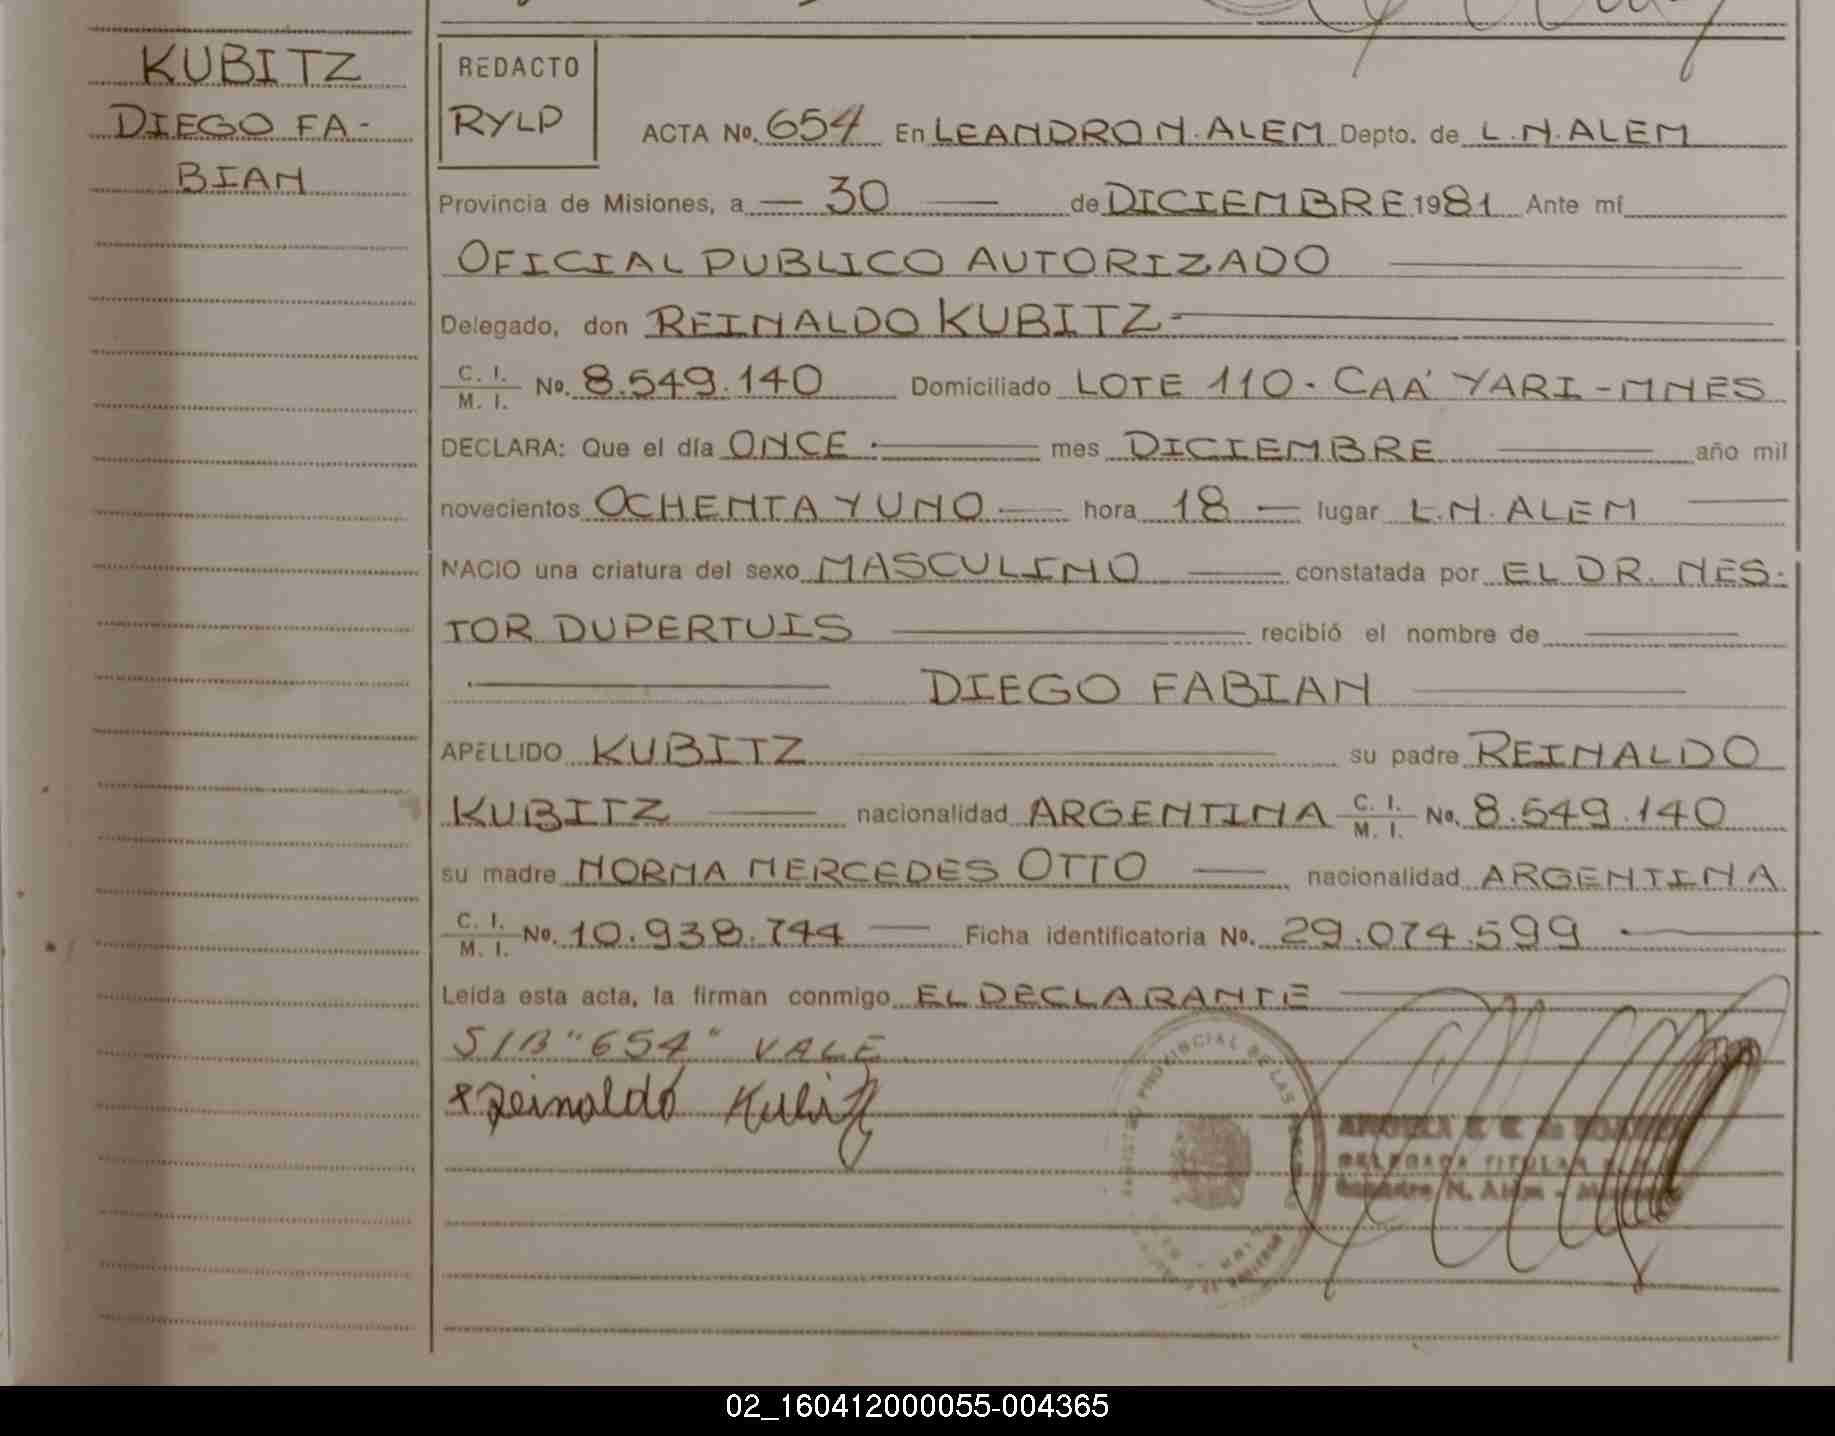 KUBITZ
DIEGO FA-
BIAN
REDACTO
RYLP
ACTA No. 654 En LEANDRO N. ALEM Depto. de L.N. ALEM
Provincia de Misiones, a — 30 — de DICIEMBRE 1981 Ante mí
OFICIAL PUBLICO AUTORIZADO
Delegado, don REINALDO KUBITZ
C. I. / M. I. No. 8.549.140 Domiciliado LOTE 110 - CAÁ YARI - MNES
DECLARA: Que el día ONCE mes DICIEMBRE año mil
novecientos OCHENTA Y UNO hora 18 — lugar L.N. ALEM
NACIO una criatura del sexo MASCULINO constatada por EL DR. NES-
TOR DUPERTUIS recibió el nombre de
DIEGO FABIAN
APELLIDO KUBITZ su padre REINALDO
KUBITZ nacionalidad ARGENTINA C. I. / M. I. No. 8.549.140
su madre NORMA MERCEDES OTTO nacionalidad ARGENTINA
C. I. / M. I. No. 10.938.744 Ficha identificatoria No. 29.074.599
Leída esta acta, la firman conmigo EL DECLARANTE
S/B "654" VALE
Reinaldo Kubitz
PROVINCIAL DE LAS
DELEGADA TITULAR
Leandro N. Alem - Misiones
02_160412000055-004365